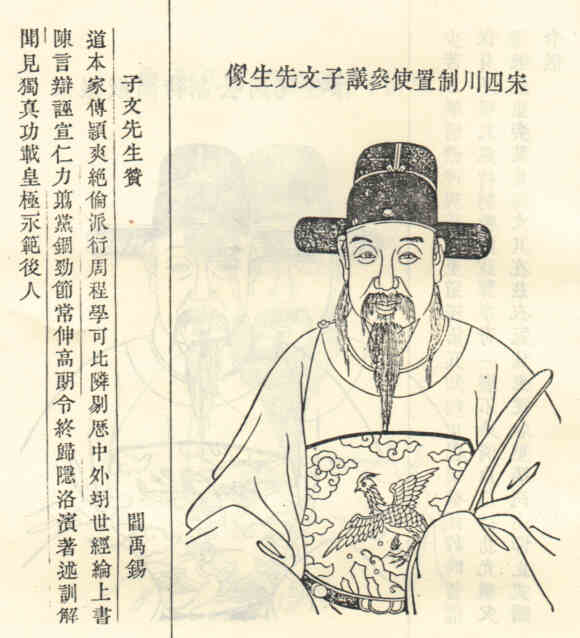 宋四川制置使參議子文先生像
子文先生贊　閻禹錫
道本家傳頴爽絕倫派衍周程學可比隣剔厯中外翊世經綸上書
陳言辯誣宣仁力翦黨錮勁節常伸高朗令終歸隱洛濱著述訓解
聞見獨真功載皇極示範後人